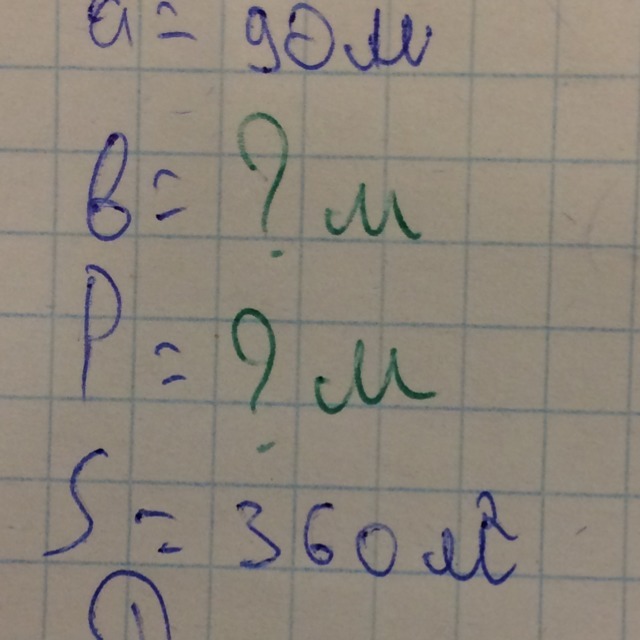 a = 90 м
в = ? м
P = ? м
S = 360 м²